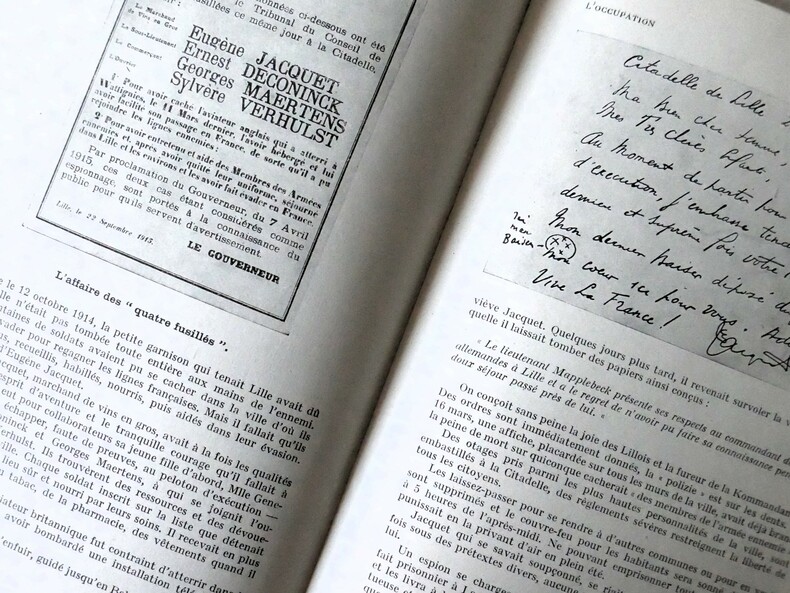 onnées ci-dessous ont été
le Tribunal du Conseil de
fusillées ce même jour à la Citadelle.
Le Marchand
de Vins en Gros
Eugène JACQUET
Le Sous-Lieutenant
Ernest DECONINCK
Le Commerçant
Georges MAERTENS
L'Ouvrier
Sylvère VERHULST
1° Pour avoir caché l'aviateur anglais qui a atterri à
Wattignies, le 11 Mars dernier, l'avoir hébergé et lui
avoir facilité son passage en France, de sorte qu'il a pu
rejoindre les lignes ennemies;
2° Pour avoir entretenu et aidé des Membres des Armées
ennemies et, après avoir quitté leur uniforme, séjourné
dans Lille et les environs et les avoir fait évader en France.
Par proclamation du Gouverneur, du 7 Avril
1915, ces deux cas étant considérés comme
espionnage, sont portés à la connaissance du
public pour qu'ils servent d'avertissement.
Lille, le 22 Septembre 1915.
LE GOUVERNEUR
L'affaire des " quatre fusillés ".
e le 12 octobre 1914, la petite garnison qui tenait Lille avait dû
lle n'était pas tombée toute entière aux mains de l'ennemi.
ntaines de soldats avaient pu se cacher dans la ville d'où ils
vader pour regagner les lignes françaises. Mais il fallait qu'ils
s, recueillis, habillés, nourris, puis aidés dans leur évasion.
d'Eugène Jacquet.
acquet, marchand de vins en gros, avait à la fois les qualités
esprit d'aventure et le tranquille courage qu'il fallait à
eut pour collaborateurs sa jeune fille d'abord, Mlle Gene-
échapper, faute de preuves, au peloton d'exécution —
ninck et Georges Maertens, à qui se joignit l'ou-
erhulst. Ils trouvèrent des ressources et des dévoue-
ville. Chaque soldat inscrit sur la liste que détenait
lieu sûr et nourri par leurs soins. Il recevait en plus
u tabac, de la pharmacie, des vêtements quand il
iateur britannique fut contraint d'atterrir dans
avoir bombardé une installation télé
enfuir, guidé jusqu'en Bel
L'OCCUPATION
Citadelle de Lille
Ma Bien chère femme,
Mes Très chers Enfants,
Au Moment de partir pour
d'exécution, j'embrasse
dernière et suprême fois votre
Mon dernier Baiser déposé
mon
Baiser
mon cœur ici pour vous. Adi
Vive La France !
viève Jacquet. Quelques jours plus tard, il revenait survoler la v
quelle il laissait tomber des papiers ainsi conçus :
« Le lieutenant Mapplebeck présente ses respects au commandant d
allemandes à Lille et a le regret de n'avoir pu faire sa connaissance pen
doux séjour passé près de lui. »
On conçoit sans peine la joie des Lillois et la fureur de la Kommandan
Des ordres sont immédiatement donnés, la « polizie » est sur les dents.
16 mars, une affiche, placardée sur tous les murs de la ville, avait déjà bran
la peine de mort sur quiconque cacherait « des membres de l'armée ennemie
Des otages pris parmi les plus hautes personnalités de la ville, sont
embastillés à la Citadelle, des règlements sévères restreignent la liberté de
tous les citoyens.
Les laissez-passer pour se rendre à d'autres communes ou pour en
sont supprimés et le couvre-feu pour les habitants sera sonné
à 5 heures de l'après-midi. Ne pouvant emprisonner tout
punissait en la privant d'air en plein été.
Jacquet, qui se savait soupçonné, se
fois sous des prétextes divers, aucune
lui.
Un espion se charge
fait prisonnier à L
et les livra à
tueuse et